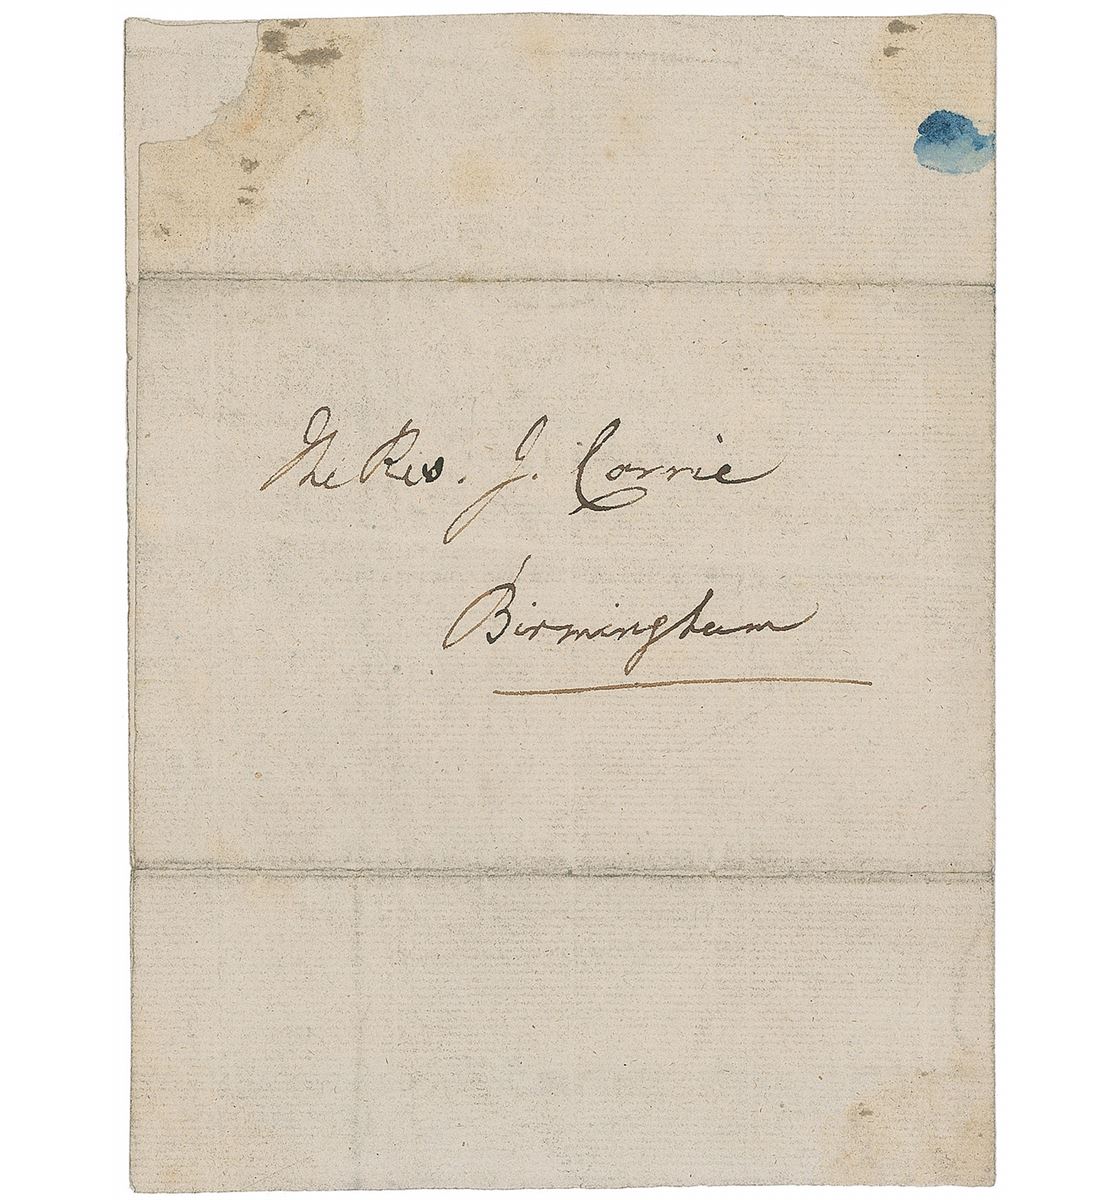 The Rev. J. Corrie
Birmingham